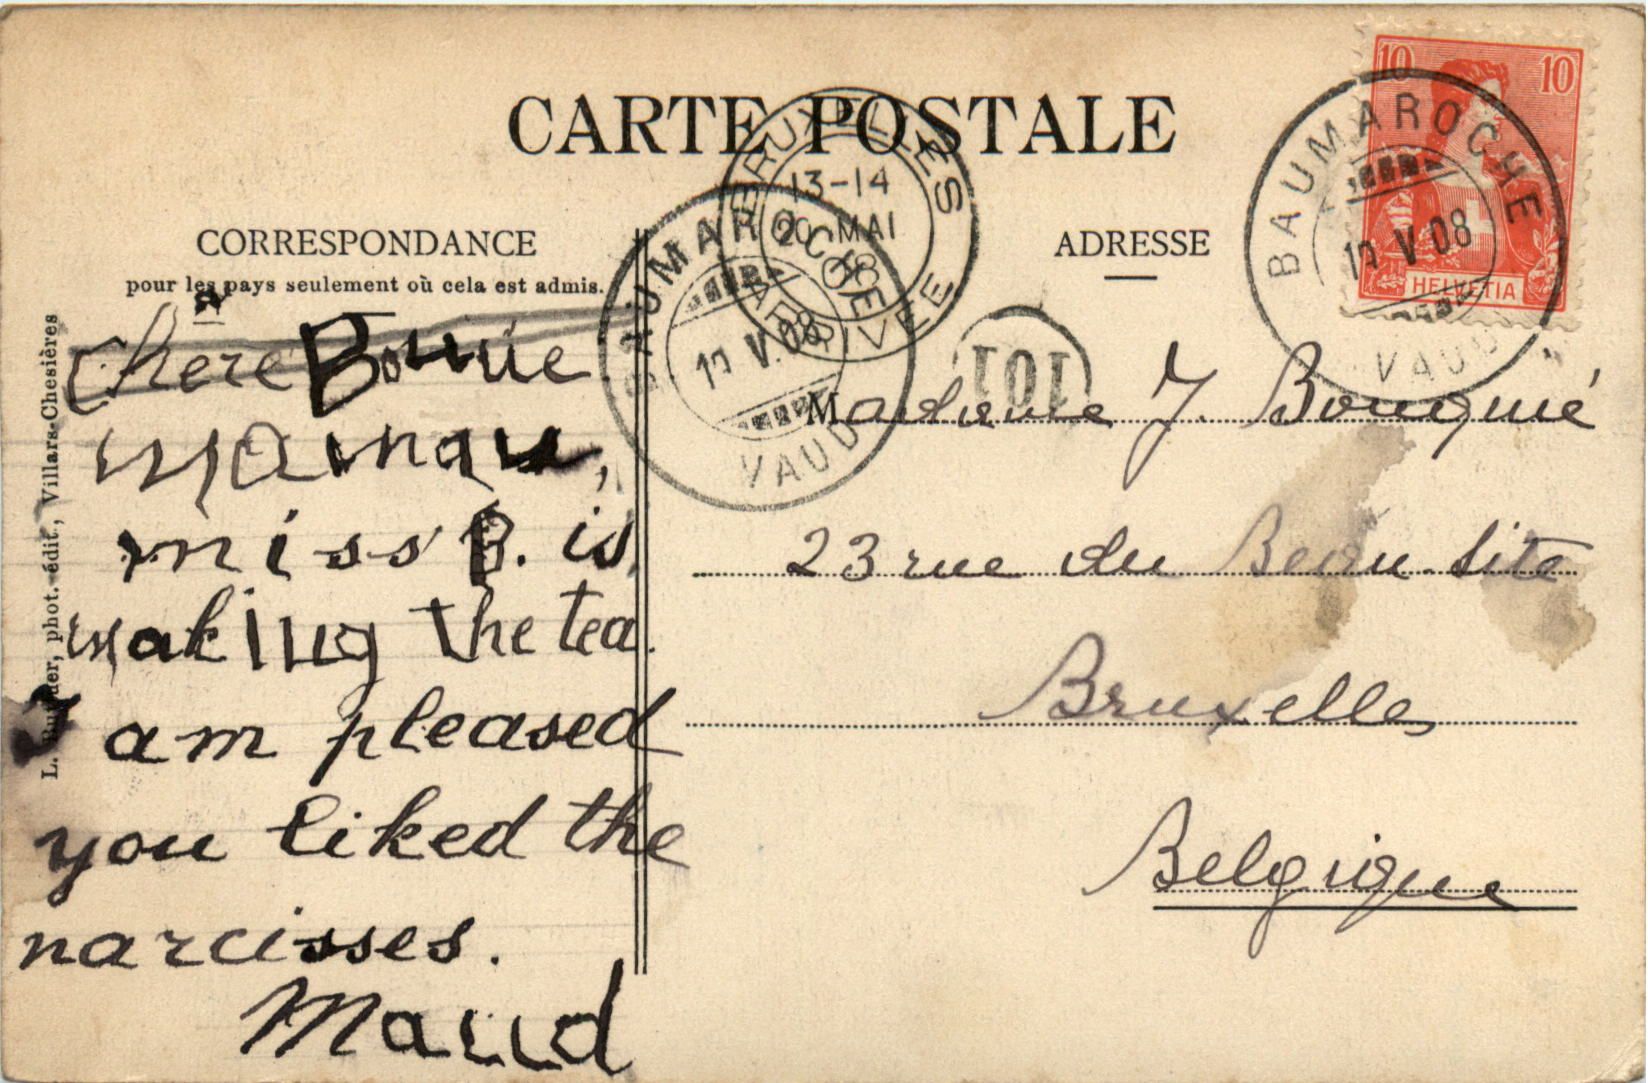 CARTE POSTALE
CORRESPONDANCE
pour les pays seulement où cela est admis.
Chère Bonnie
maman,
miss B. is
making the tea.
I am pleased
you liked the
narcisses.
Maud
L. phot. édit., Villars-Chesières
BRUXELLES
13-14
20 MAI
BAUMAROCHE
V.08
VAUD
101
ADRESSE
10 10
HELVETIA
BAUMAROCHE
V.08
VAUD
Madame J. Bouquié
23 rue du Beau-Site
Bruxelles
Belgique